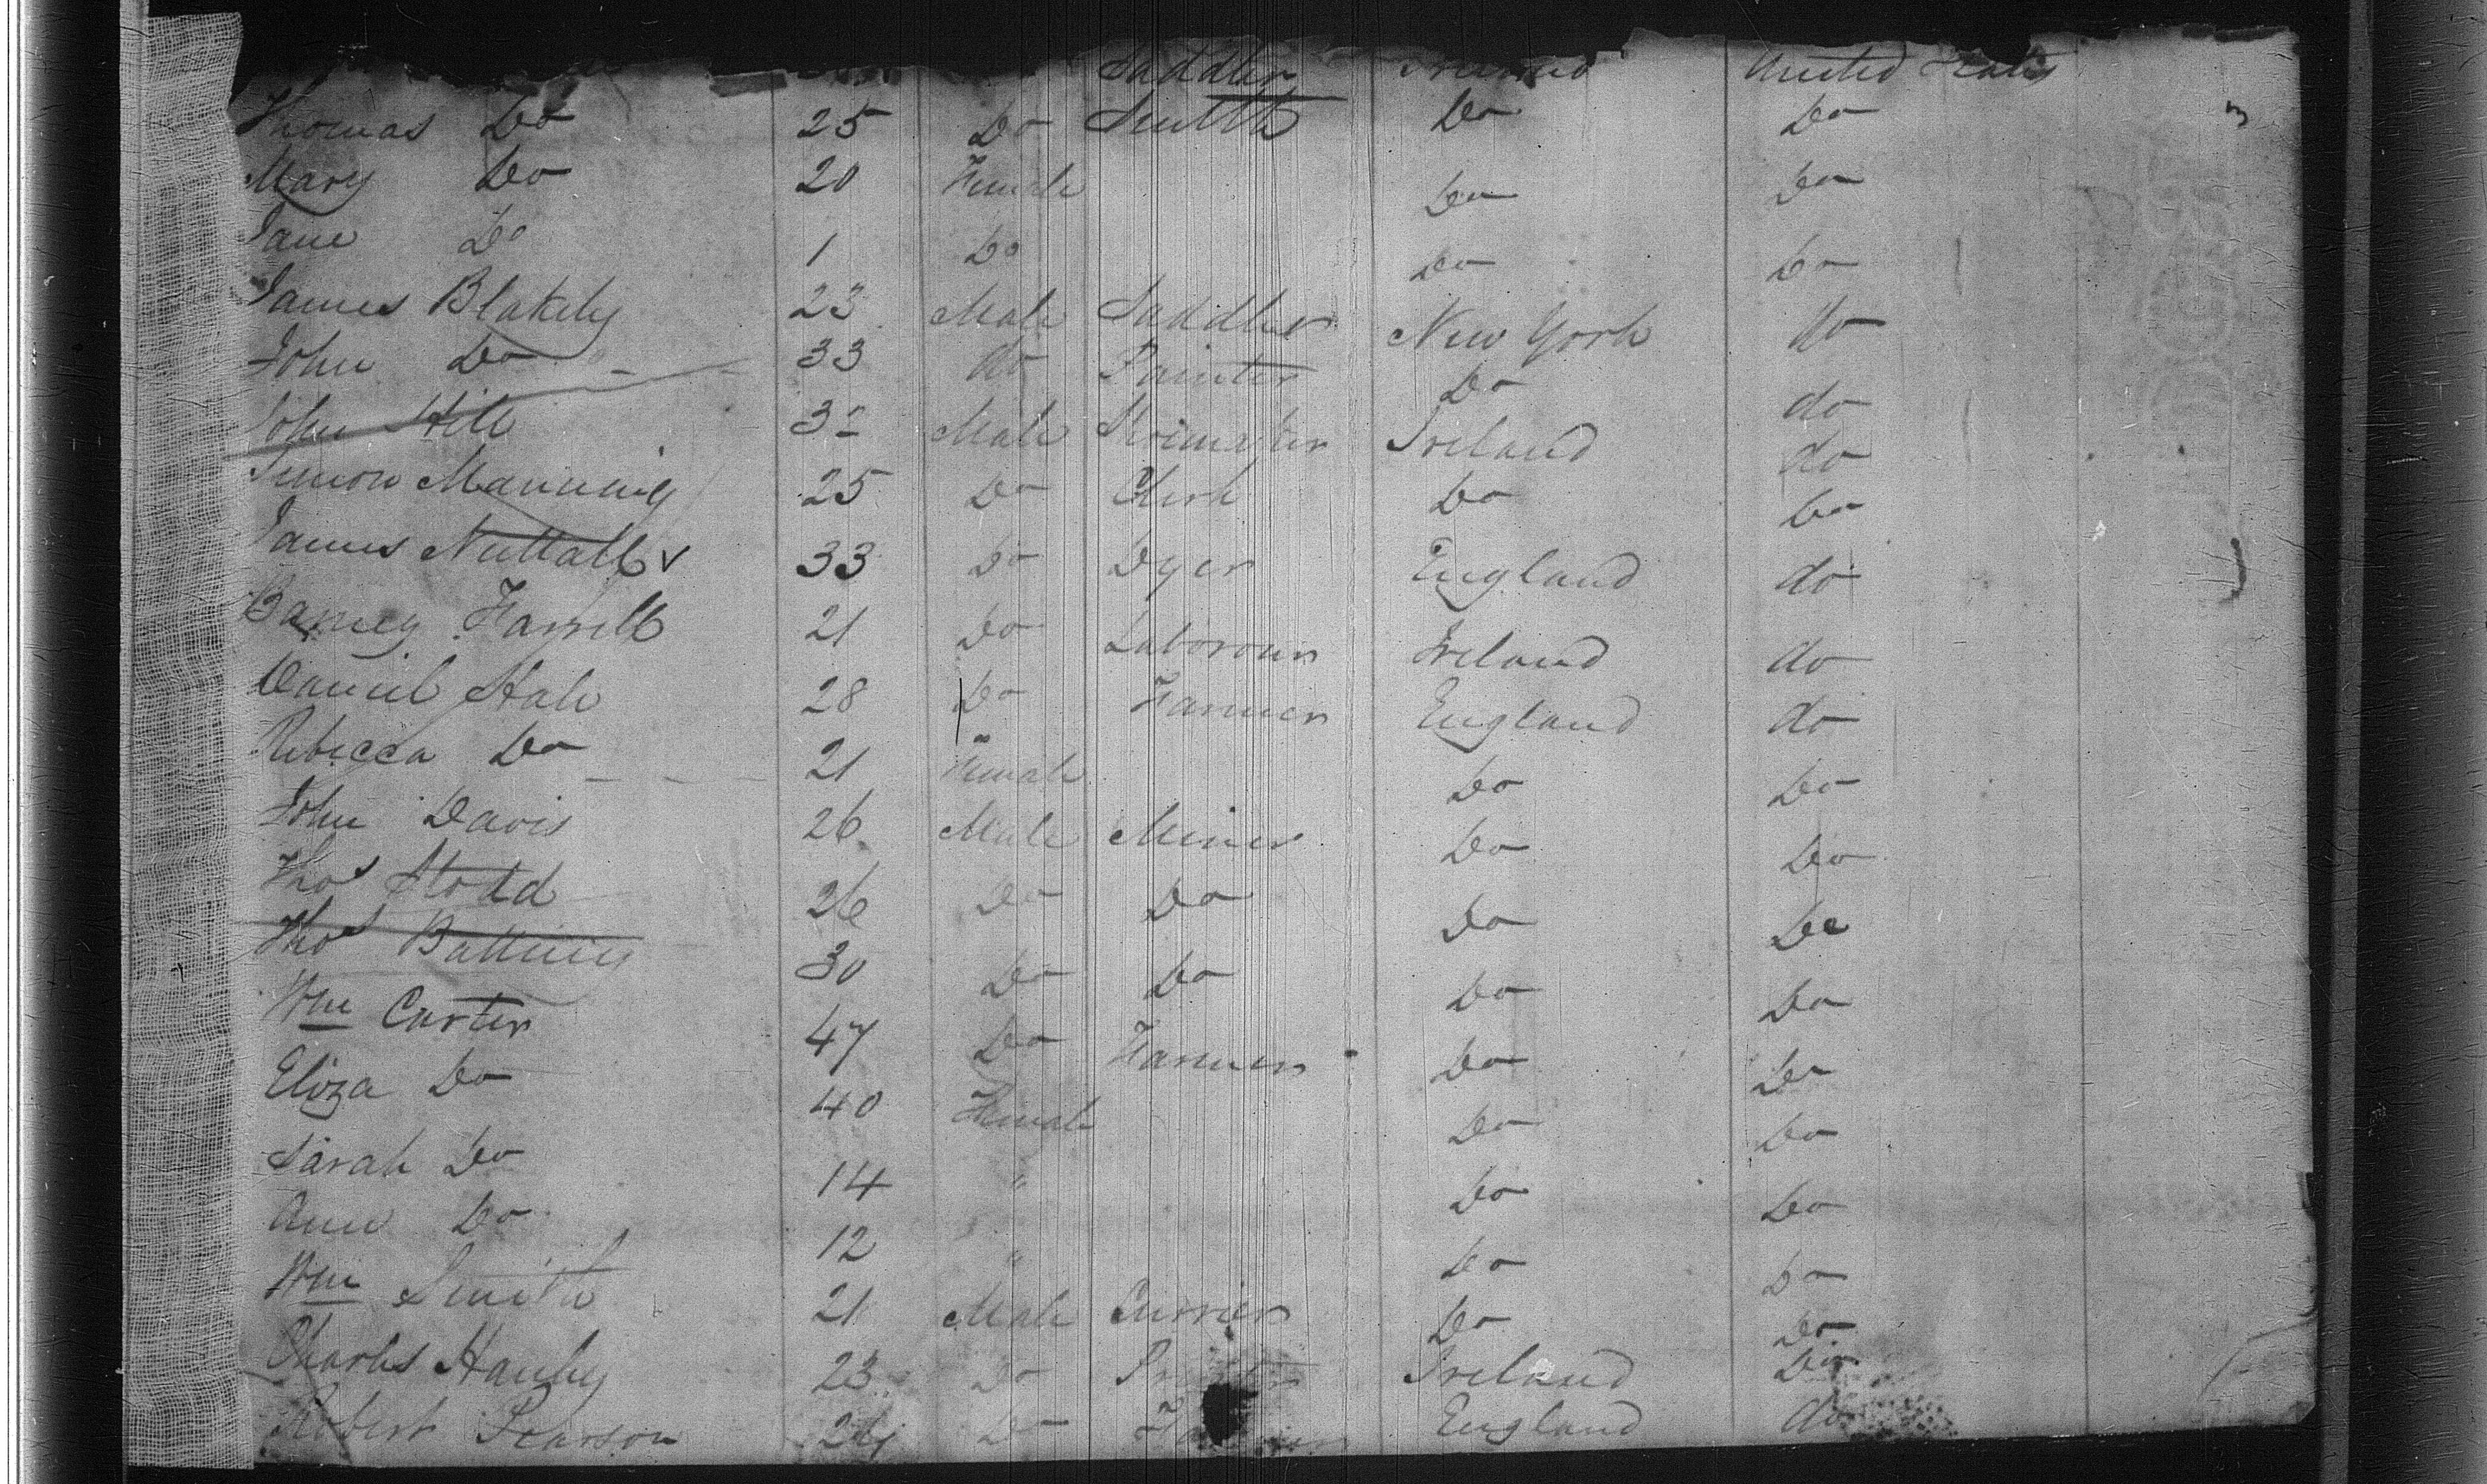 Saddler Ireland United States
Thomas Do 25 Do Smith Do Do
Mary Do 20 Female Do Do
Jane Do 1 Do Do Do
James Blakely 23 Male Saddler New York do
John Do 33 do Painter Do do
John Hill 3 Male Shoemaker Ireland do
Simon Manning 25 Do Clerk Do Do
James Nuttall 33 Do Dyer England do
Barney Farrell 21 Do Laborour Ireland do
Daniel Hale 28 Do Farmer England do
Rebecca Do 21 Female Do Do
John Davis 26 Male Miner Do Do
Thos Stodd 26 Do Do Do Do
Thos 30 Do Do Do Do
Wm Carter 47 Do Farmer Do Do
Eliza Do 40 Female Do Do
Sarah Do 14 " Do Do
Ann Do 12 " Do Do
Wm Smith 21 Male Currier Do Do
Charles Hanby 23 Do Ireland Do
Robert Pearson 24 Do England do